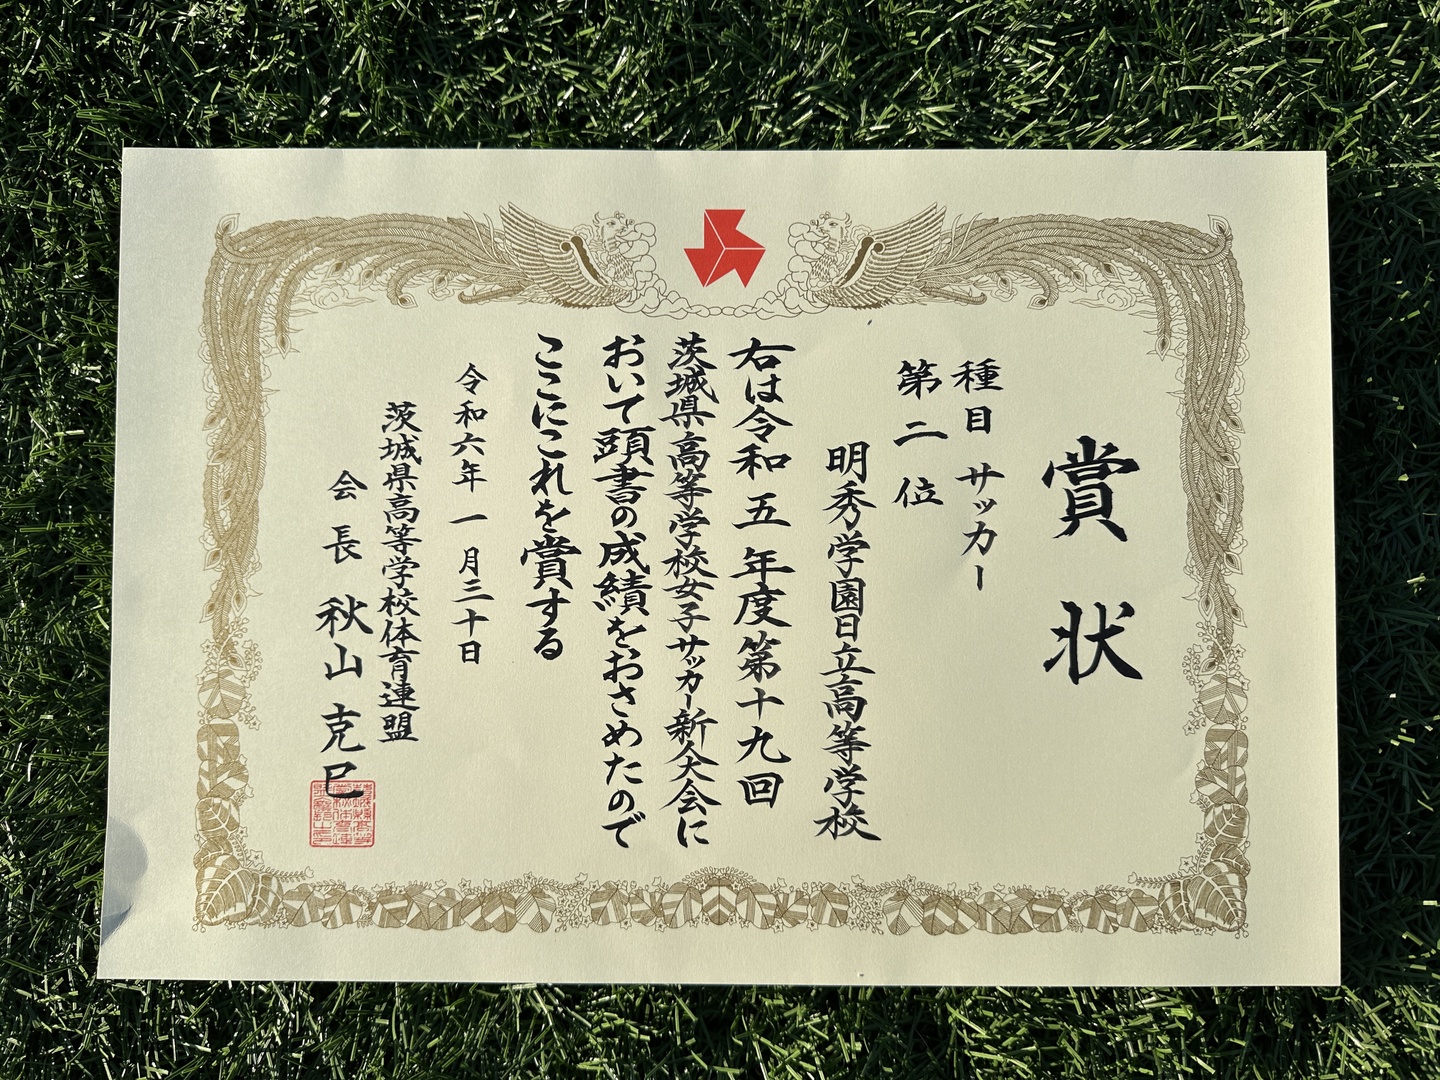 賞状
種目 サッカー
第二位
明秀学園日立高等学校
右は令和五年度第十九回
茨城県高等学校女子サッカー新人大会に
おいて頭書の成績をおさめたので
ここにこれを賞する
令和六年一月三十日
茨城県高等学校体育連盟
会長 秋山克巳